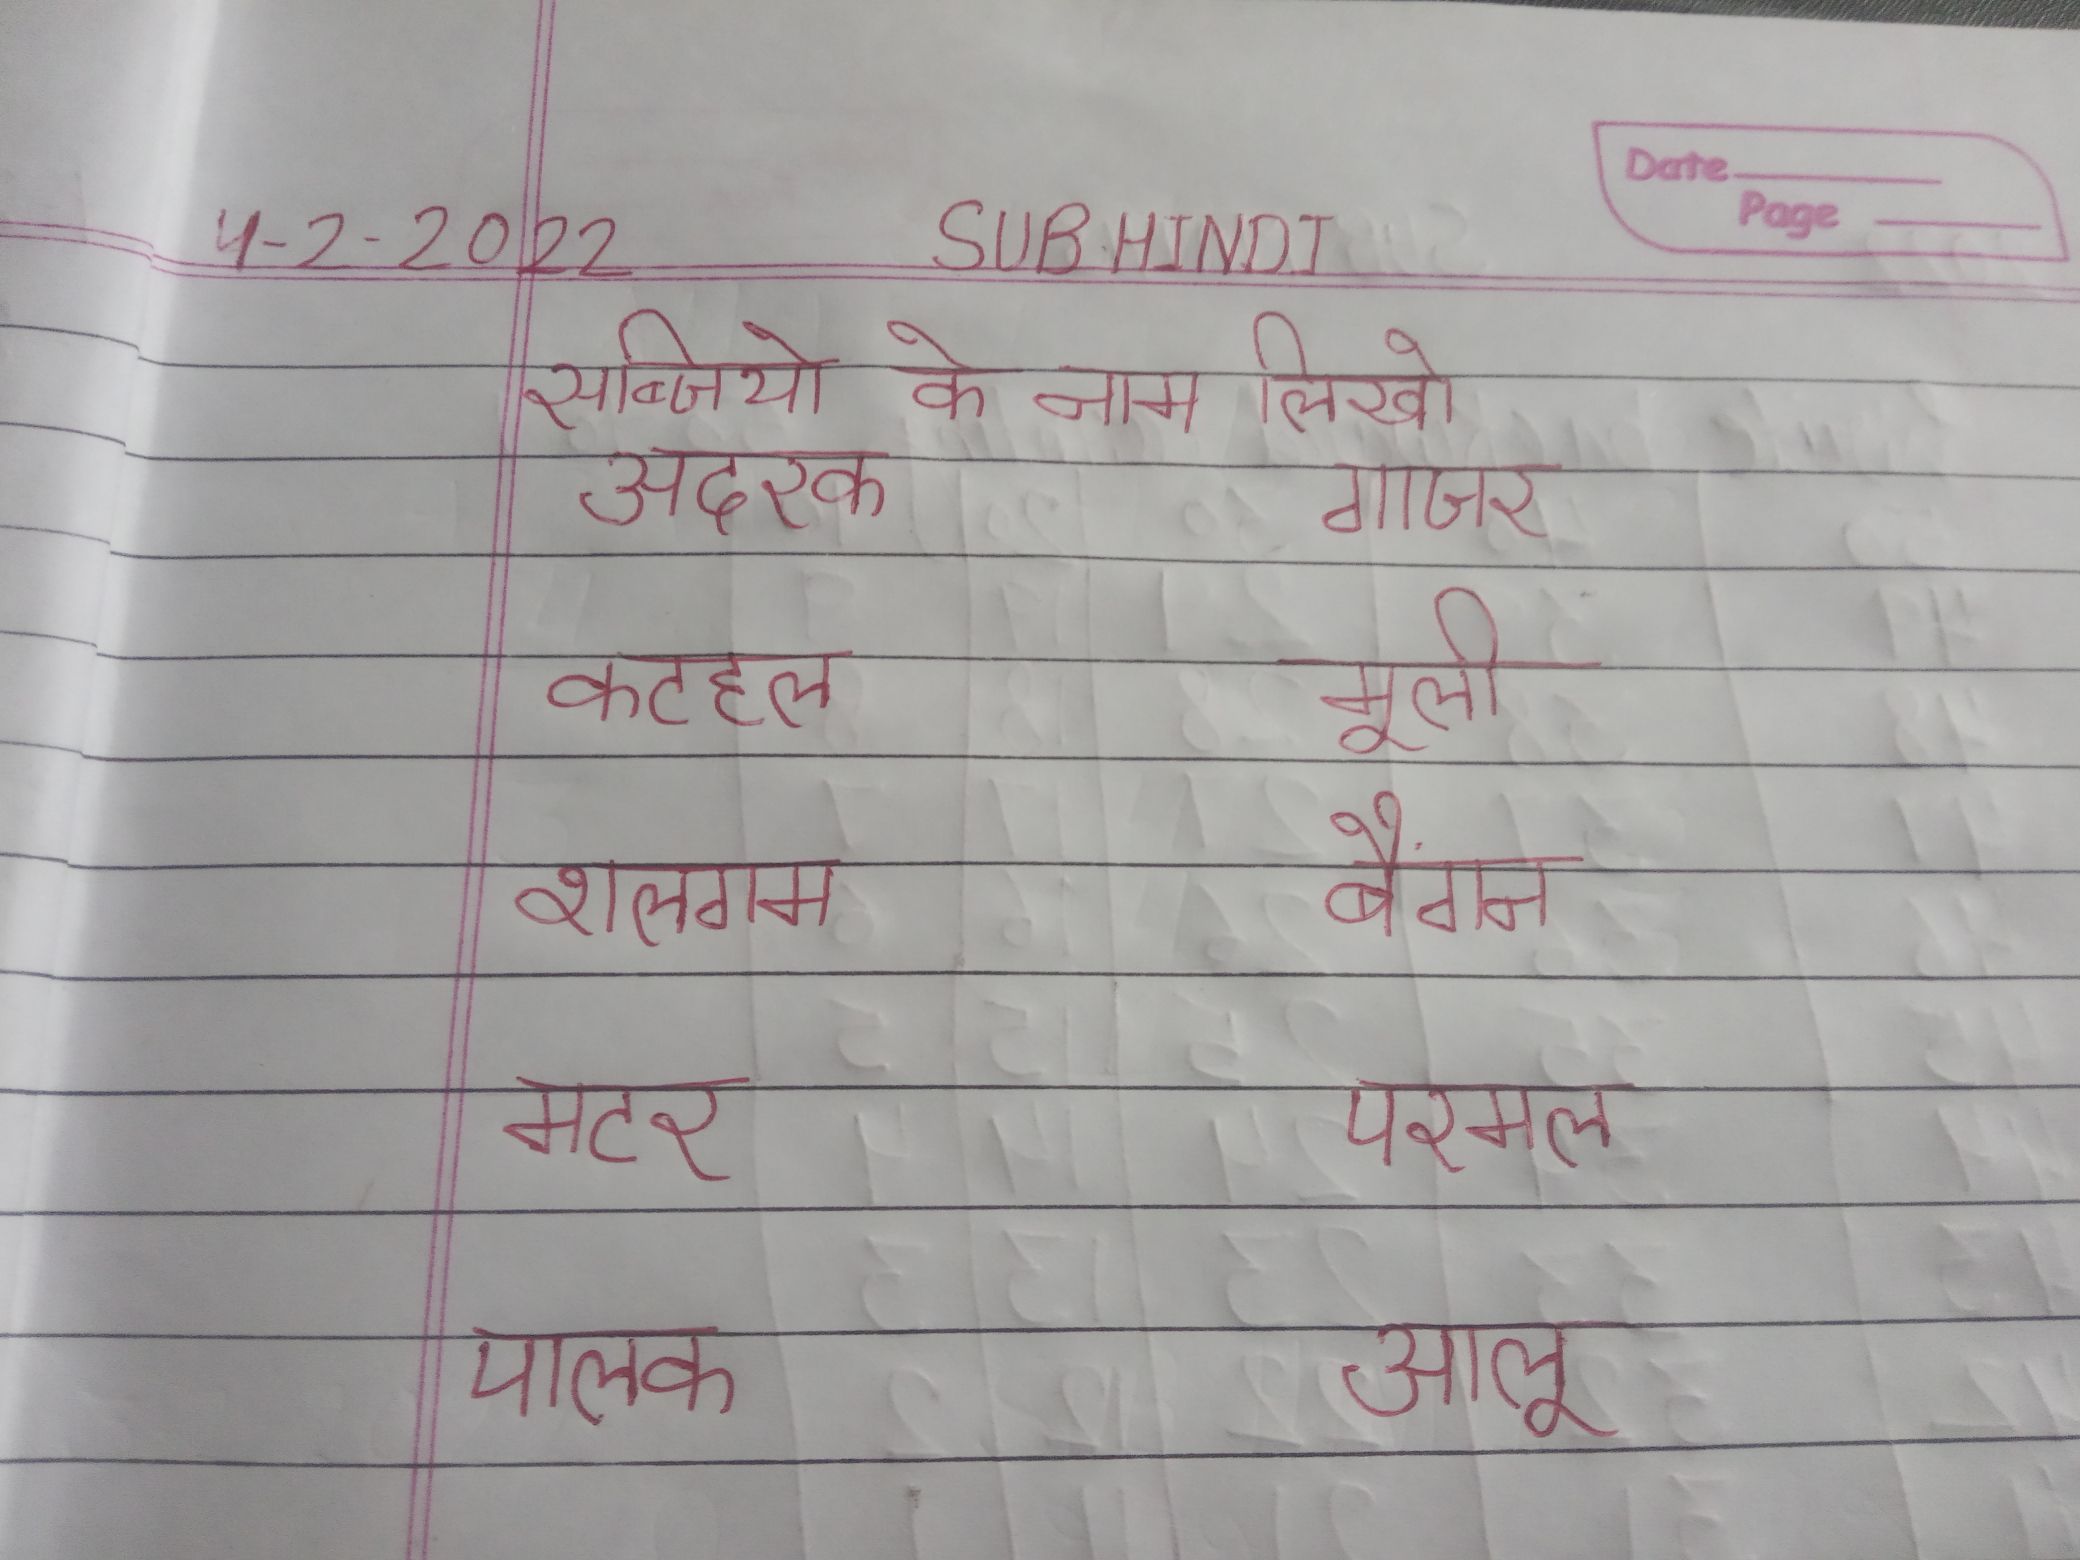 Date
Page
4-2-2022 SUB.HINDI
सब्जियो के नाम लिखो
अदरक गाजर
कटहल मूली
शलगम बैंगन
मटर परमल
पालक आलू